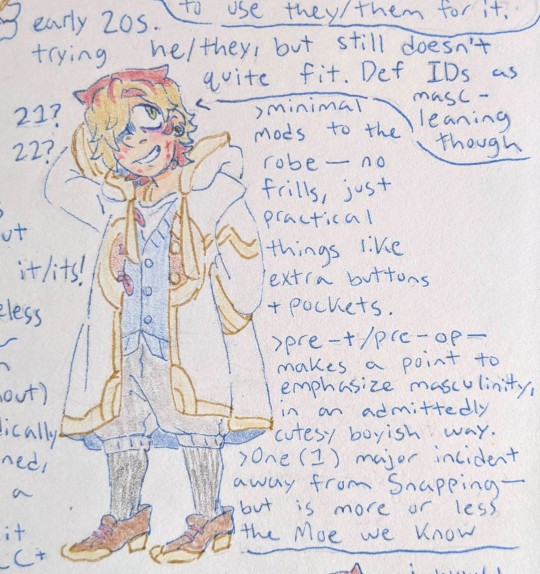 to use they/them for it.
early 20s.
trying he/they, but still doesn't
quite fit. Def IDs as
masc-
leaning
though
21?
22?
>minimal
mods to the
robe — no
frills, just
practical
things like
extra buttons
+ pockets.
>pre-t/pre-op —
makes a point to
emphasize masculinity,
in an admittedly
cutesy boyish way.
>One (1) major incident
away from Snapping —
but is more or less
the Moe we Know
it/its!